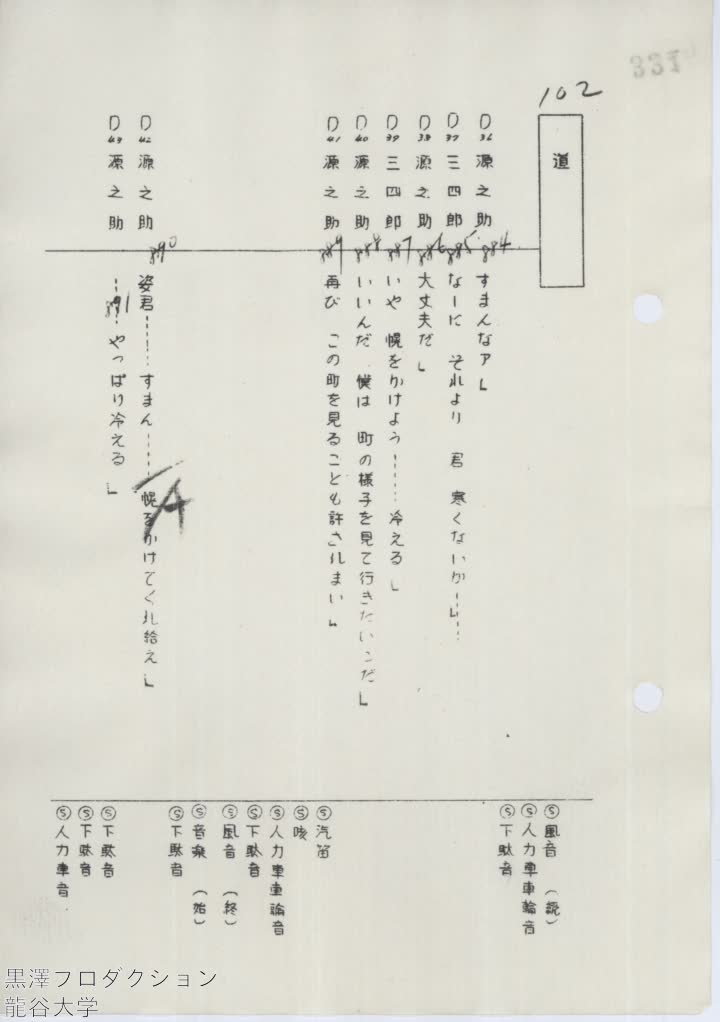 331
102
道
D36 源之助 884 すまんなア」
D37 三四郎 885 なーに それより 君 寒くないか……」
D38 源之助 886 大丈夫だ」
D39 三四郎 887 いや 幌をかけよう……冷える」
D40 源之助 888 いいんだ 僕は 町の様子を見て行きたいンだ」
D41 源之助 889 再び この町を見ることも許されまい」
D42 源之助 890 姿君……すまん……幌をかけてくれ給え」
D43 源之助 891 ……やっぱり冷える」
Ⓢ風音(続)
Ⓢ人力車車輪音
Ⓢ下駄音
Ⓢ汽笛
Ⓢ咳
Ⓢ人力車車輪音
Ⓢ下駄音
Ⓢ風音(終)
Ⓢ音楽(始)
Ⓢ下駄音
Ⓢ下駄音
Ⓢ下駄音
Ⓢ人力車音
黒澤プロダクション
龍谷大学